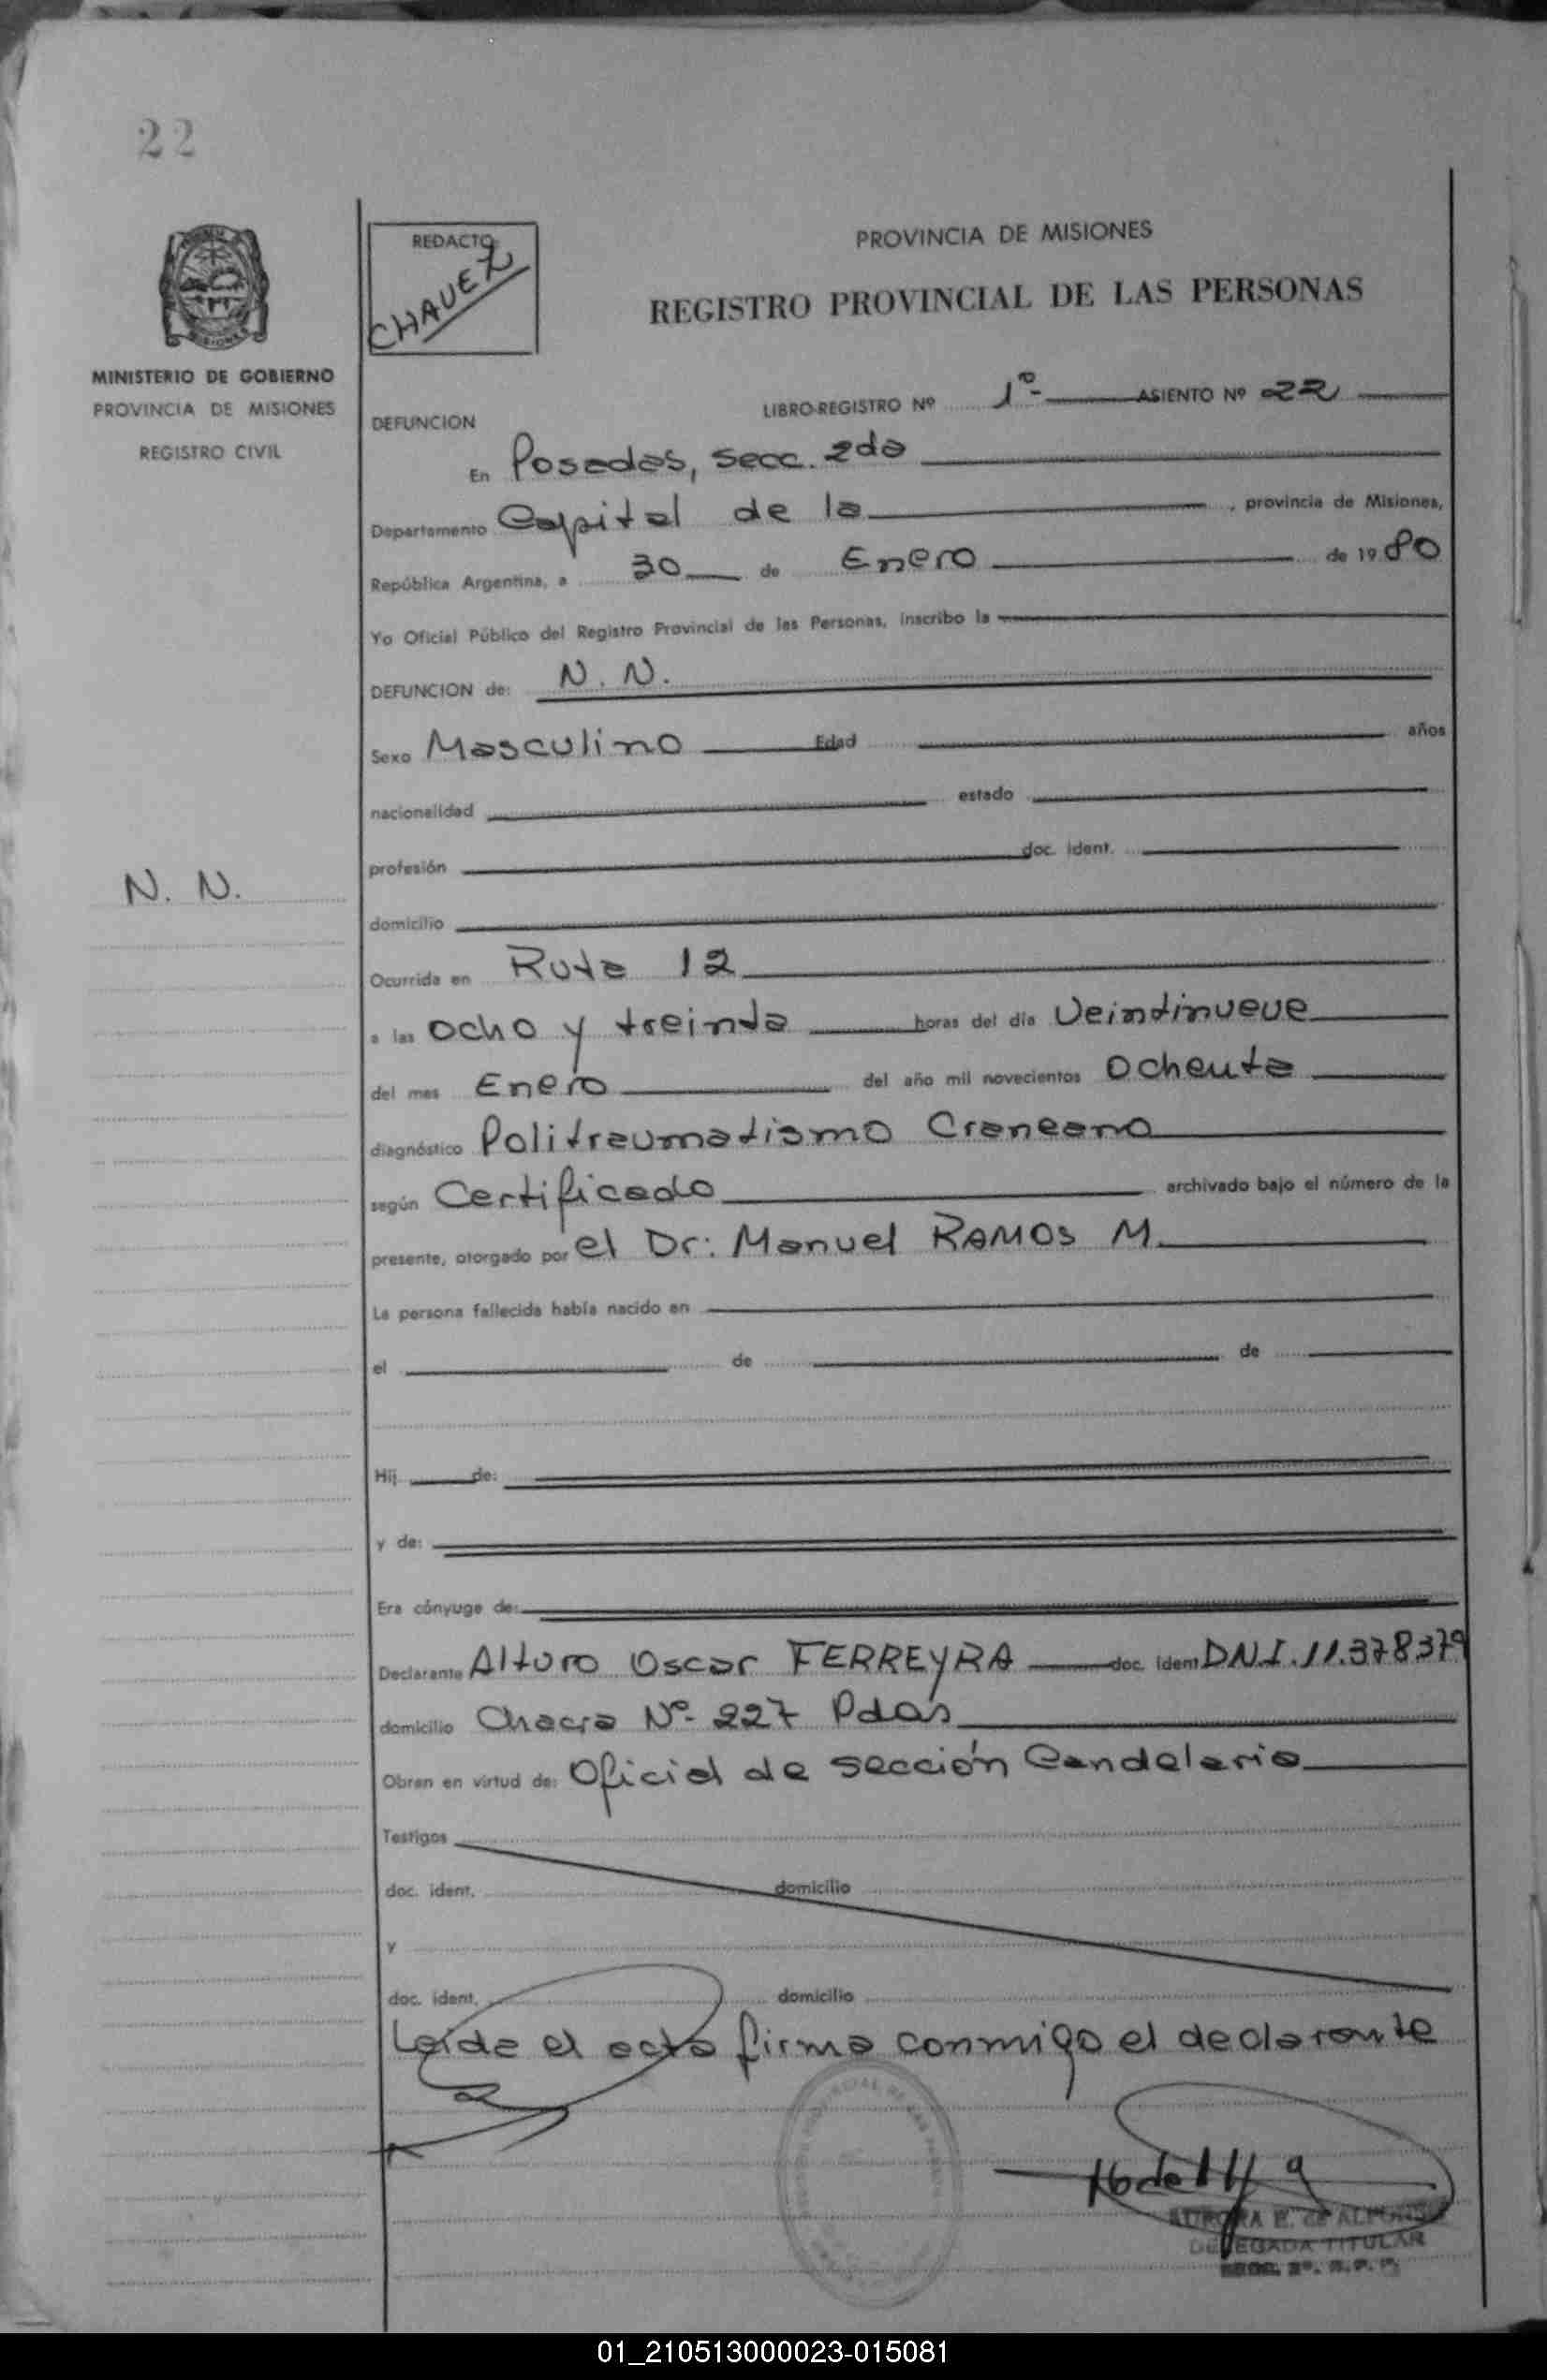 22
REDACTO
CHAVEZ
PROVINCIA DE MISIONES
REGISTRO PROVINCIAL DE LAS PERSONAS
MINISTERIO DE GOBIERNO
PROVINCIA DE MISIONES
REGISTRO CIVIL
DEFUNCION LIBRO-REGISTRO Nº 1º- ASIENTO Nº 22
En Posadas, secc. 2da
Departamento Capital de la , provincia de Misiones,
República Argentina, a 30 de Enero de 1980
Yo Oficial Público del Registro Provincial de las Personas, inscribo la
DEFUNCION de: N. N.
Sexo Masculino Edad años
nacionalidad estado
profesión doc. ident.
N. N.
domicilio
Ocurrida en Ruta 12
a las ocho y treinta horas del día Veintinueve
del mes Enero del año mil novecientos Ochenta
diagnóstico Politraumatismo Craneano
según Certificado archivado bajo el número de la
presente, otorgado por el Dr: Manuel RAMOS M.
La persona fallecida había nacido en
el de de
Hij de:
y de:
Era cónyuge de:
Declarante Alturo Oscar FERREYRA doc. ident DN.I.11.378379
domicilio Chacra Nº- 227 Pdas
Obran en virtud de: Oficial de sección Candelaria
Testigos
doc. ident. domicilio
y
doc. ident. domicilio
Leída el acta firma conmigo el declarante
AURORA E. de
DELEGADA TITULAR
SECC. 2º. R.P.P.
01_210513000023-015081